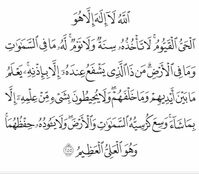 اللَّهُ لَا إِلَٰهَ إِلَّا هُوَ
الْحَيُّ الْقَيُّومُ ۚ لَا تَأْخُذُهُ سِنَةٌ وَلَا نَوْمٌ ۚ لَّهُ مَا فِي السَّمَاوَاتِ
وَمَا فِي الْأَرْضِ ۗ مَن ذَا الَّذِي يَشْفَعُ عِندَهُ إِلَّا بِإِذْنِهِ ۚ يَعْلَمُ
مَا بَيْنَ أَيْدِيهِمْ وَمَا خَلْفَهُمْ ۖ وَلَا يُحِيطُونَ بِشَيْءٍ مِّنْ عِلْمِهِ إِلَّا
بِمَا شَاءَ ۚ وَسِعَ كُرْسِيُّهُ السَّمَاوَاتِ وَالْأَرْضَ ۖ وَلَا يَئُودُهُ حِفْظُهُمَا ۚ
وَهُوَ الْعَلِيُّ الْعَظِيمُ ﴿٢٥٥﴾